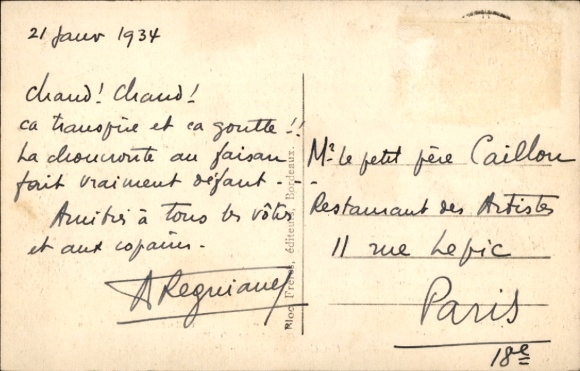 21 Janv 1934
Chaud! Chaud!
ca transpire et ca goutte!!
La choucroute au faisan
fait vraiment défaut - - -
Amitiés à tous les vôtres
et aux copains -
Bloc Frères, éditeurs, Bordeaux.
Mr le petit père Caillon
Restaurant des Artistes
11 rue Lepic
Paris
18e